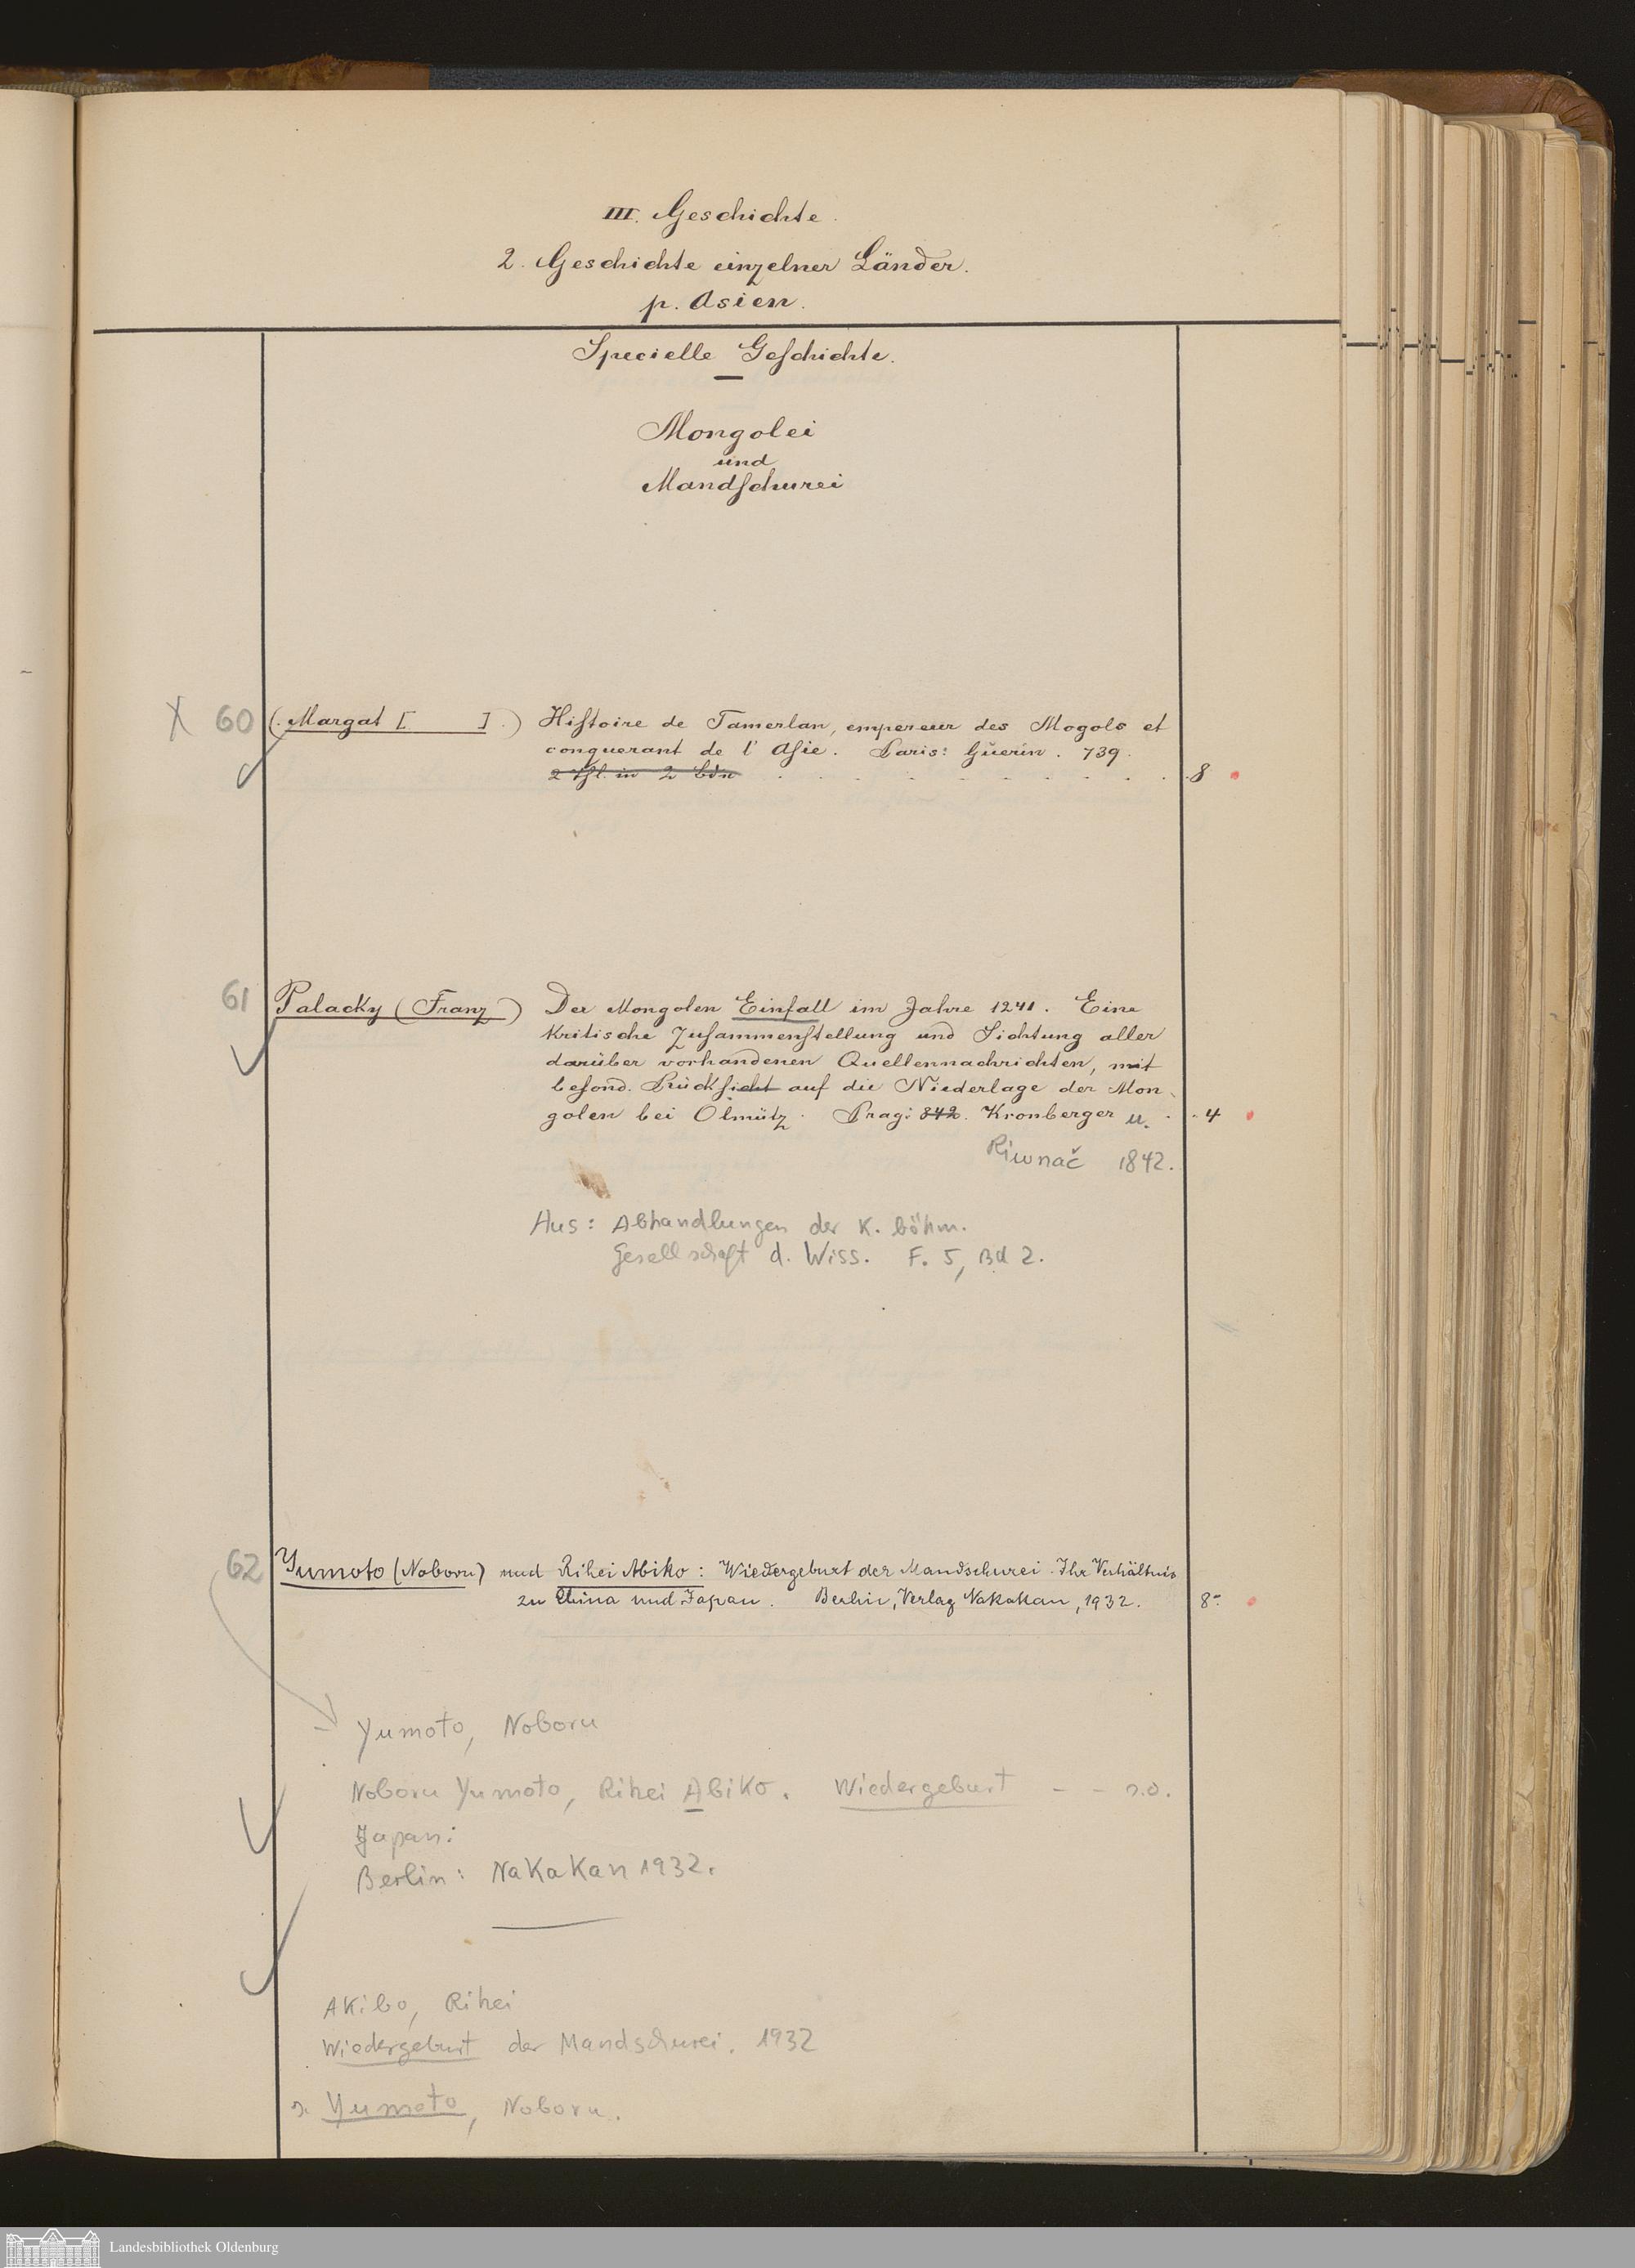 III. Geschichte.
2. Geschichte einzelner Länder.
p. Asien.
Specielle Geschichte.
Mongolei
und
Mandschurei
X 60 (Margat [ ].) Histoire de Tamerlan, empereur des Mogols et
conquerant de l'Asie. Paris: Guerin. 739.
2 Thl. in 2 Bdn . . . . . . . . . 8
61 Palacky (Franz) Der Mongolen Einfall im Jahre 1241. Eine
kritische Zusammenstellung und Sichtung aller
darüber vorhandenen Quellennachrichten, mit
besond. Rücksicht auf die Niederlage der Mon-
golen bei Olmütz. Prag: 842. Kronberger u. . . 4
Riwnač 1842.
Aus: Abhandlungen der K. böhm.
Gesellschaft d. Wiss. F. 5, Bd 2.
62 Yumoto (Noboru) und Rihei Abiko: Wiedergeburt der Mandschurei. Ihr Verhältnis
zu China und Japan. Berlin, Verlag Nakakan, 1932. 8°
Yumoto, Noboru
Noboru Yumoto, Rihei Abiko. Wiedergeburt - - s.o.
Japan:
Berlin: Nakakan 1932.
Akibo, Rihei
Wiedergeburt der Mandschurei. 1932
s. Yumoto, Noboru.
Landesbibliothek Oldenburg